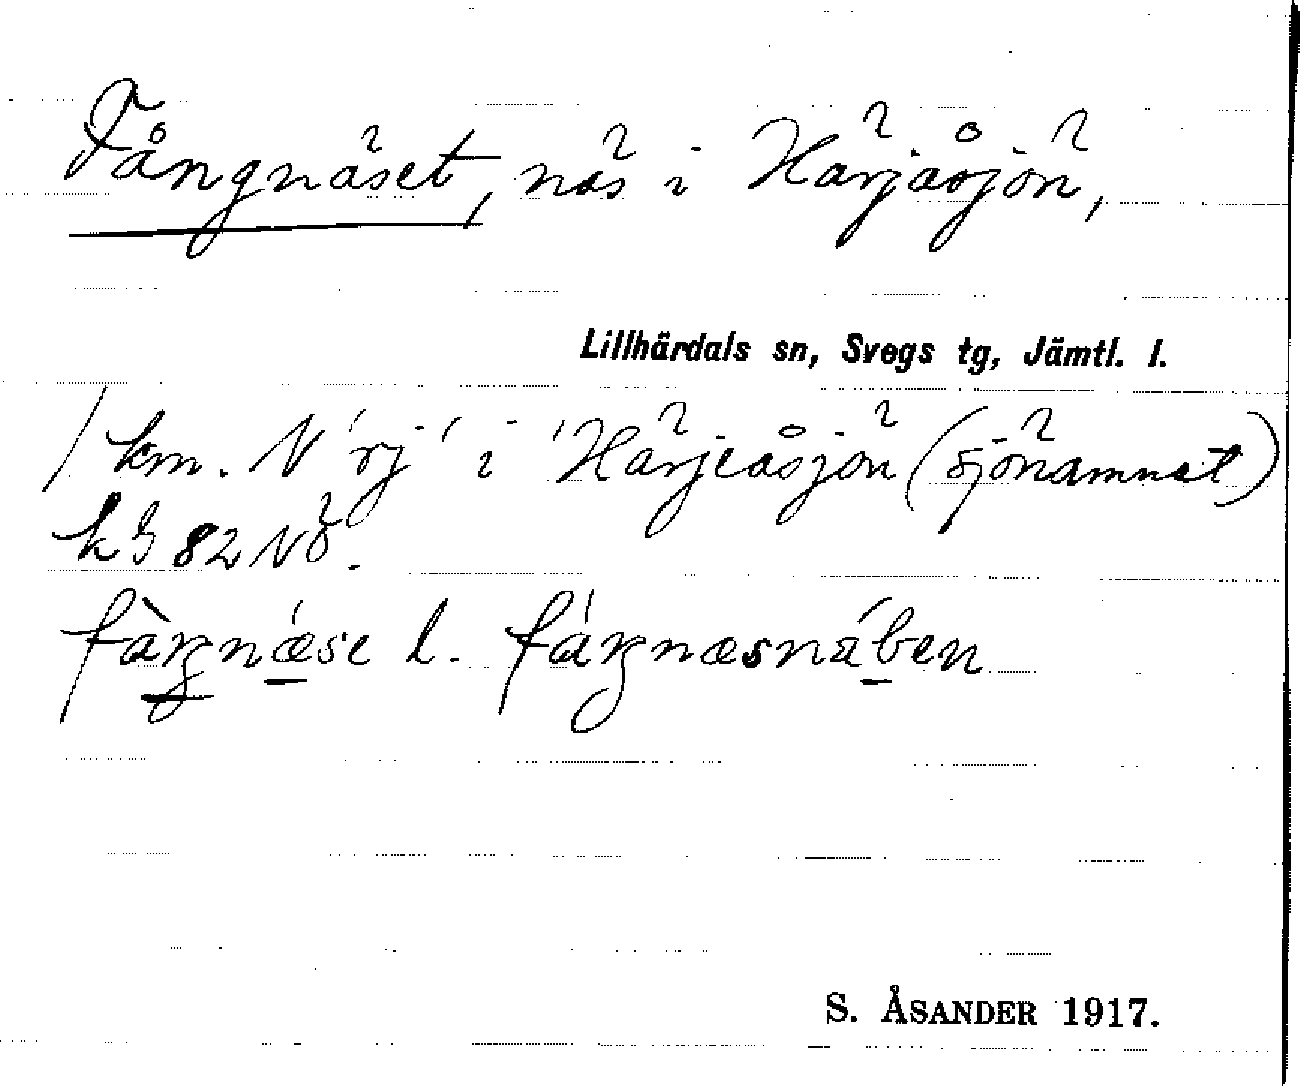 Fångnäset, näs i Härjåsjön,
Lillhärdals sn, Svegs tg, Jämtl. l.
1 km. N 'rj' i 'Härjeåsjön (sjönamnet)
kg 82 NÖ.
fàŋnæ´se l. fáŋnæsnä´ben
S. ÅSANDER 1917.